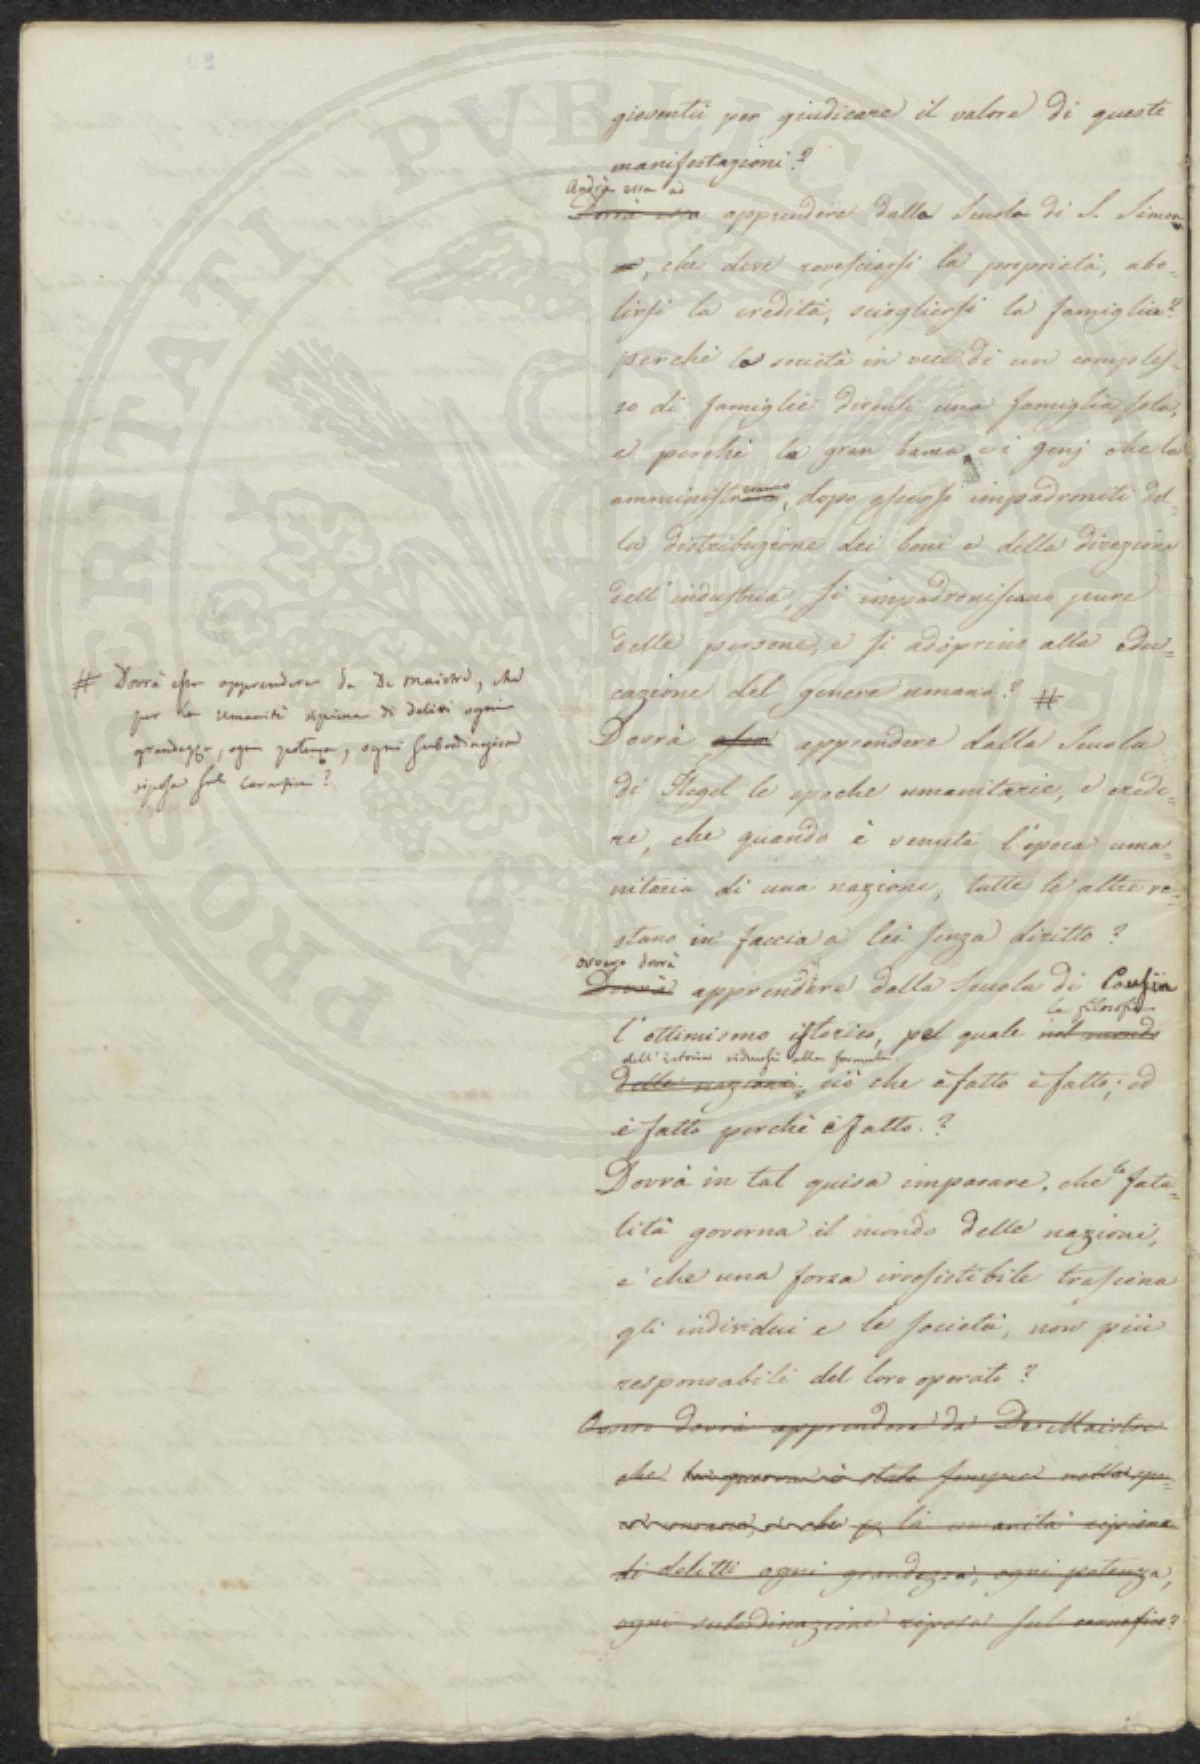 gioventù per giudicare il valore di queste
manifestazioni?
Andrà essa ad
Dovrà essa apprendere dalla Scuola di S. Simon
, che deve rovesciarsi la proprietà, abo-
lirsi la eredità, sciogliersi la famiglia?
perchè la società in vece di un comples-
so di famiglie diventi una famiglia sola,
e perchè la gran banca, e i genj che la
amministr, dopo essersi impadroniti del-
la distribuzione dei beni e della direzione
dell'industria, si impadroniscano pure
delle persone, e si adoprino alla edu=
cazione del genere umano? #
# Dovrà essa apprendere da De Maistre, che
per la umanità ripiena di delitti ogni
grandezza, ogni potenza, ogni subordinazione
riposa sul carnefice?
Dovrà essa apprendere dalla Scuola
di Hegel le epoche umanitarie, e crede-
re, che quando è venuta l'epoca uma=
nitaria di una nazione, tutte le altre re-
stano in faccia a lei senza diritto?
ovvero dovrà
Dovrà apprendere dalla Scuola di Cousin
la filosofia
l'ottimismo istorico, pel quale nel mondo
dell'istoria riducesi alla formula
delle nazioni, ciò che è fatto è fatto; ed
è fatto perchè è fatto.?
Dovrà in tal guisa imparare, che la fata=
lità governa il mondo delle nazioni,
e che una forza irresistibile trascina
gli individui e le società, non più
responsabili del loro operato?
Ovvero dovrà apprendere da De Maistre
che la guerra è stata sempre nella spe=
umana, e che p la umanità ripiena
di delitti ogni grandezza, ogni potenza,
ogni subordinazione riposa sul carnefice?
PROSPERITATI PVBLICAE